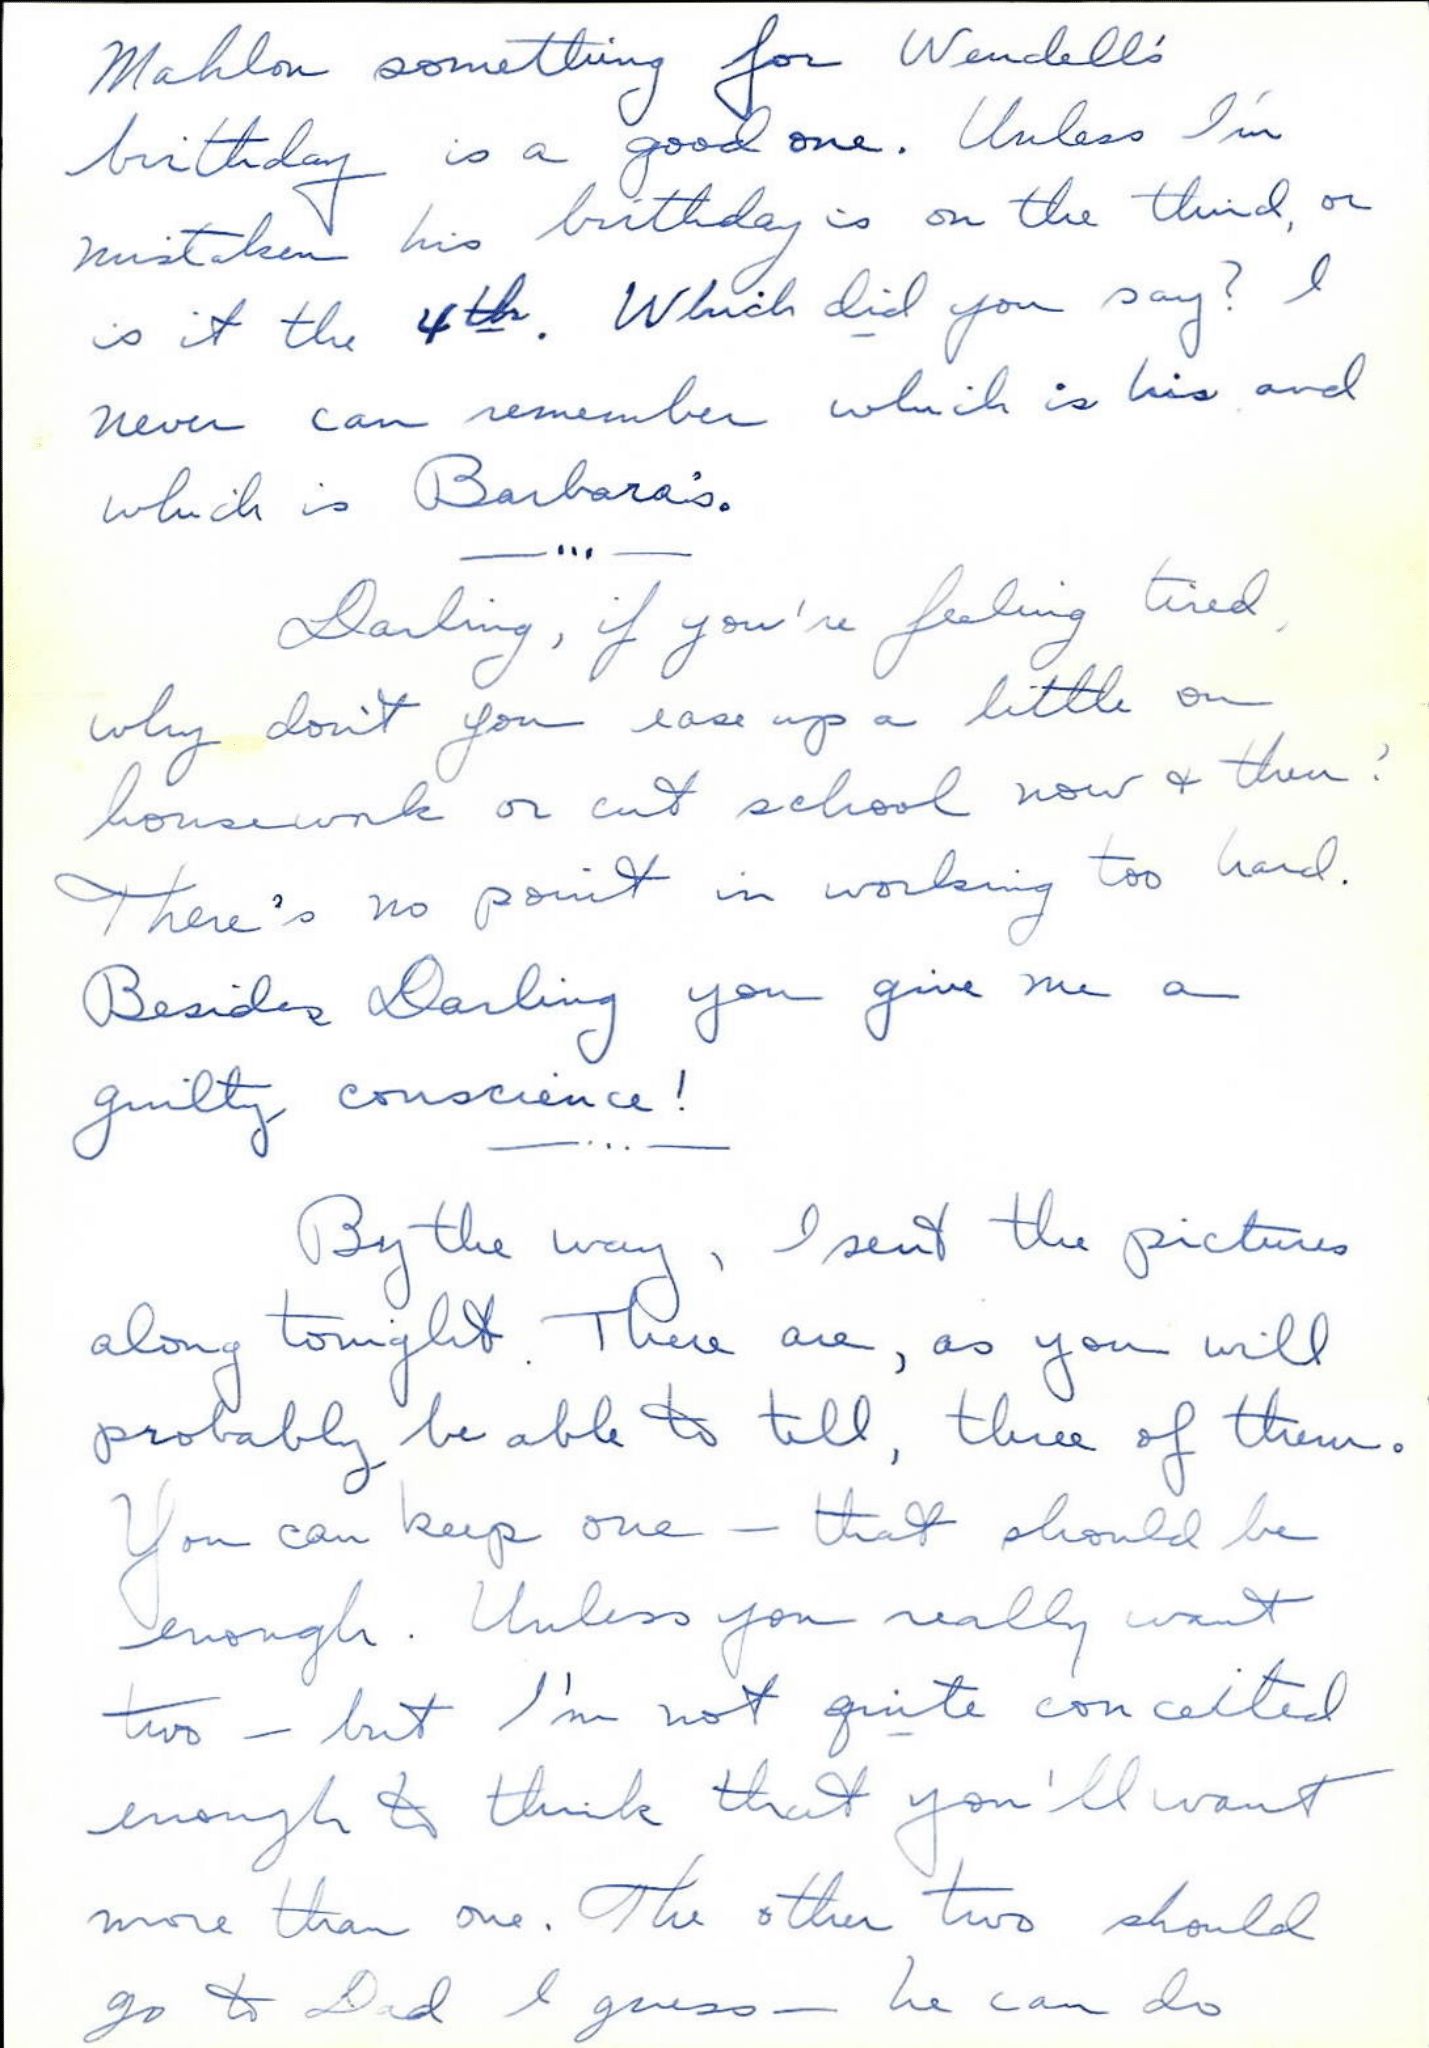 Mahlon something for Wendell's
birthday is a good one. Unless I'm
mistaken his birthday is on the third, or
is it the 4th. Which did you say? I
never can remember which is his and
which is Barbara's.
— ... —
Darling, if you're feeling tired,
why don't you ease up a little on
housework or cut school now & then?
There's no point in working too hard.
Besides Darling you give me a
guilty conscience!
— ... —
By the way, I sent the pictures
along tonight. There are, as you will
probably be able to tell, three of them.
You can keep one — that should be
enough. Unless you really want
two — but I'm not quite conceited
enough to think that you'll want
more than one. The other two should
go to Dad I guess — he can do